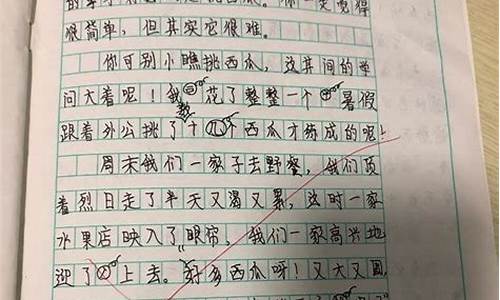 很简单，但其实它很难。
你可别小瞧挑西瓜，这其间的学
问大着呢！我花了整整一个暑假
跟着外公挑了十几个西瓜才练成的呢！
周末我们一家子去野餐，我们顶
着烈日走了半天又渴又累，这时一家
水果店映入了眼帘，我们一家高兴地
迎了上去。好多西瓜呀！又大又圆，